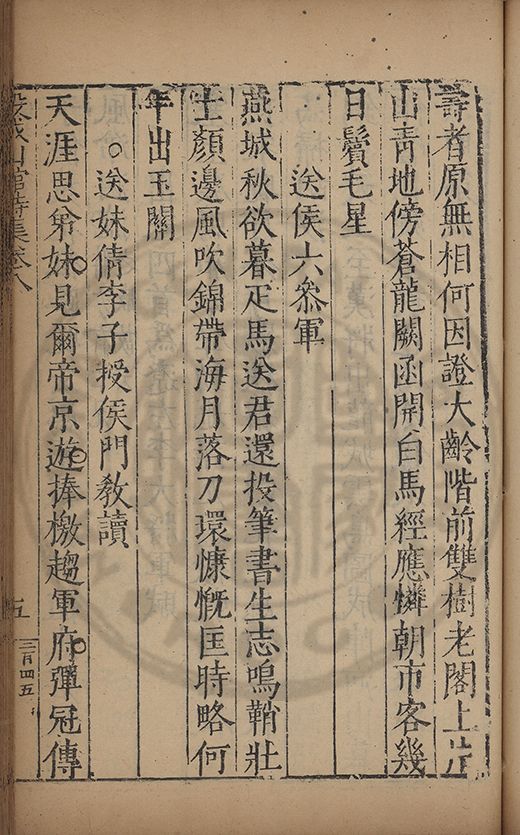 壽者原無相何因證大齡階前雙樹老閣上片
山青地傍蒼龍闕函開白馬經應憐朝市客幾
日鬢毛星
送侯六叅軍
燕城秋欲暮疋馬送君還投筆書生志鳴鞘壯
士顏邊風吹錦帶海月落刀環慷慨匡時略何
年出玉關
○送妹倩李子授侯門教讀
天涯思弟妹見爾帝京遊捧檄趨軍府彈冠傳
山館詩集卷八
五
二百四五